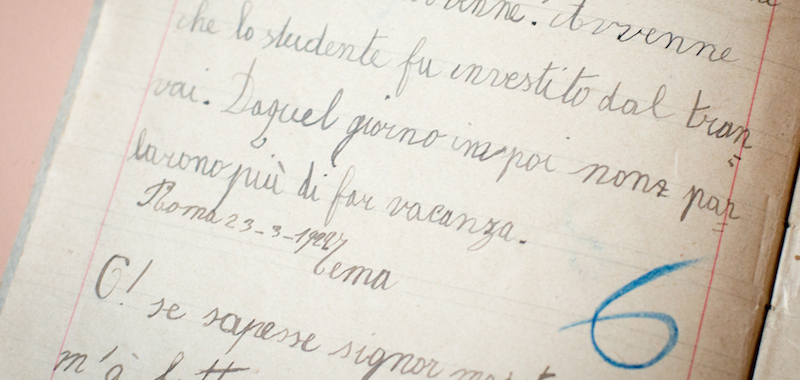 Avvenne
che lo studente fu investito dal tran=
vai. Da quel giorno in poi non par=
larono più di far vacanza.
Roma 23-3-1927
Tema
6
O! se sapesse signor
m'à